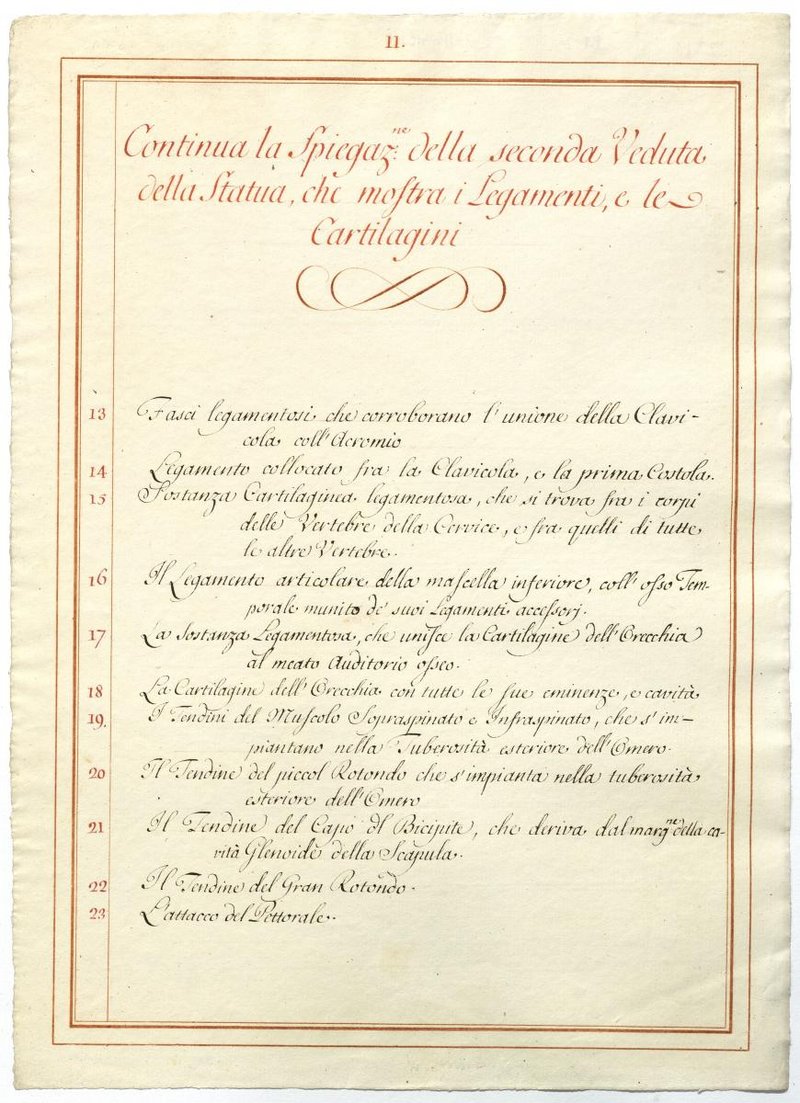 II.
Continua la Spiegaz.ne della seconda Veduta
della Statua, che moſtra i Legamenti, e le
Cartilagini
13 Fasci legamentosi che corroborano l'unione della Clavi-
cola coll'Acromio
14 Legamento collocato fra la Clavicola, e la prima Costola.
15 Sostanza Cartilaginea legamentosa, che si trova fra i corpi
delle Vertebre della Cervice, e fra quelli di tutte
le altre Vertebre.
16 Il Legamento articolare della maſcella inferiore, coll'oſso Tem-
porale munito de' suoi Legamenti acceſsorj.
17 La Sostanza Legamentosa, che uniſce la Cartilagine dell'Orecchia
al meato Auditorio oſseo.
18 La Cartilagine dell'Orecchia con tutte le ſue eminenze, e cavità
19. I Tendini del Muſcolo Sopraspinato e Infraspinato, che s'im-
piantano nella Tuberosità esteriore dell'Omero.
20 Il Tendine del piccol Rotondo che s'impianta nella tuberosità
esteriore dell'Omero
21 Il Tendine del Capo dl Bicipite, che deriva dal marg.ne della ca-
vità Glenoide della Scapula.
22 Il Tendine del Gran Rotondo.
23 L'attacco del Pettorale.